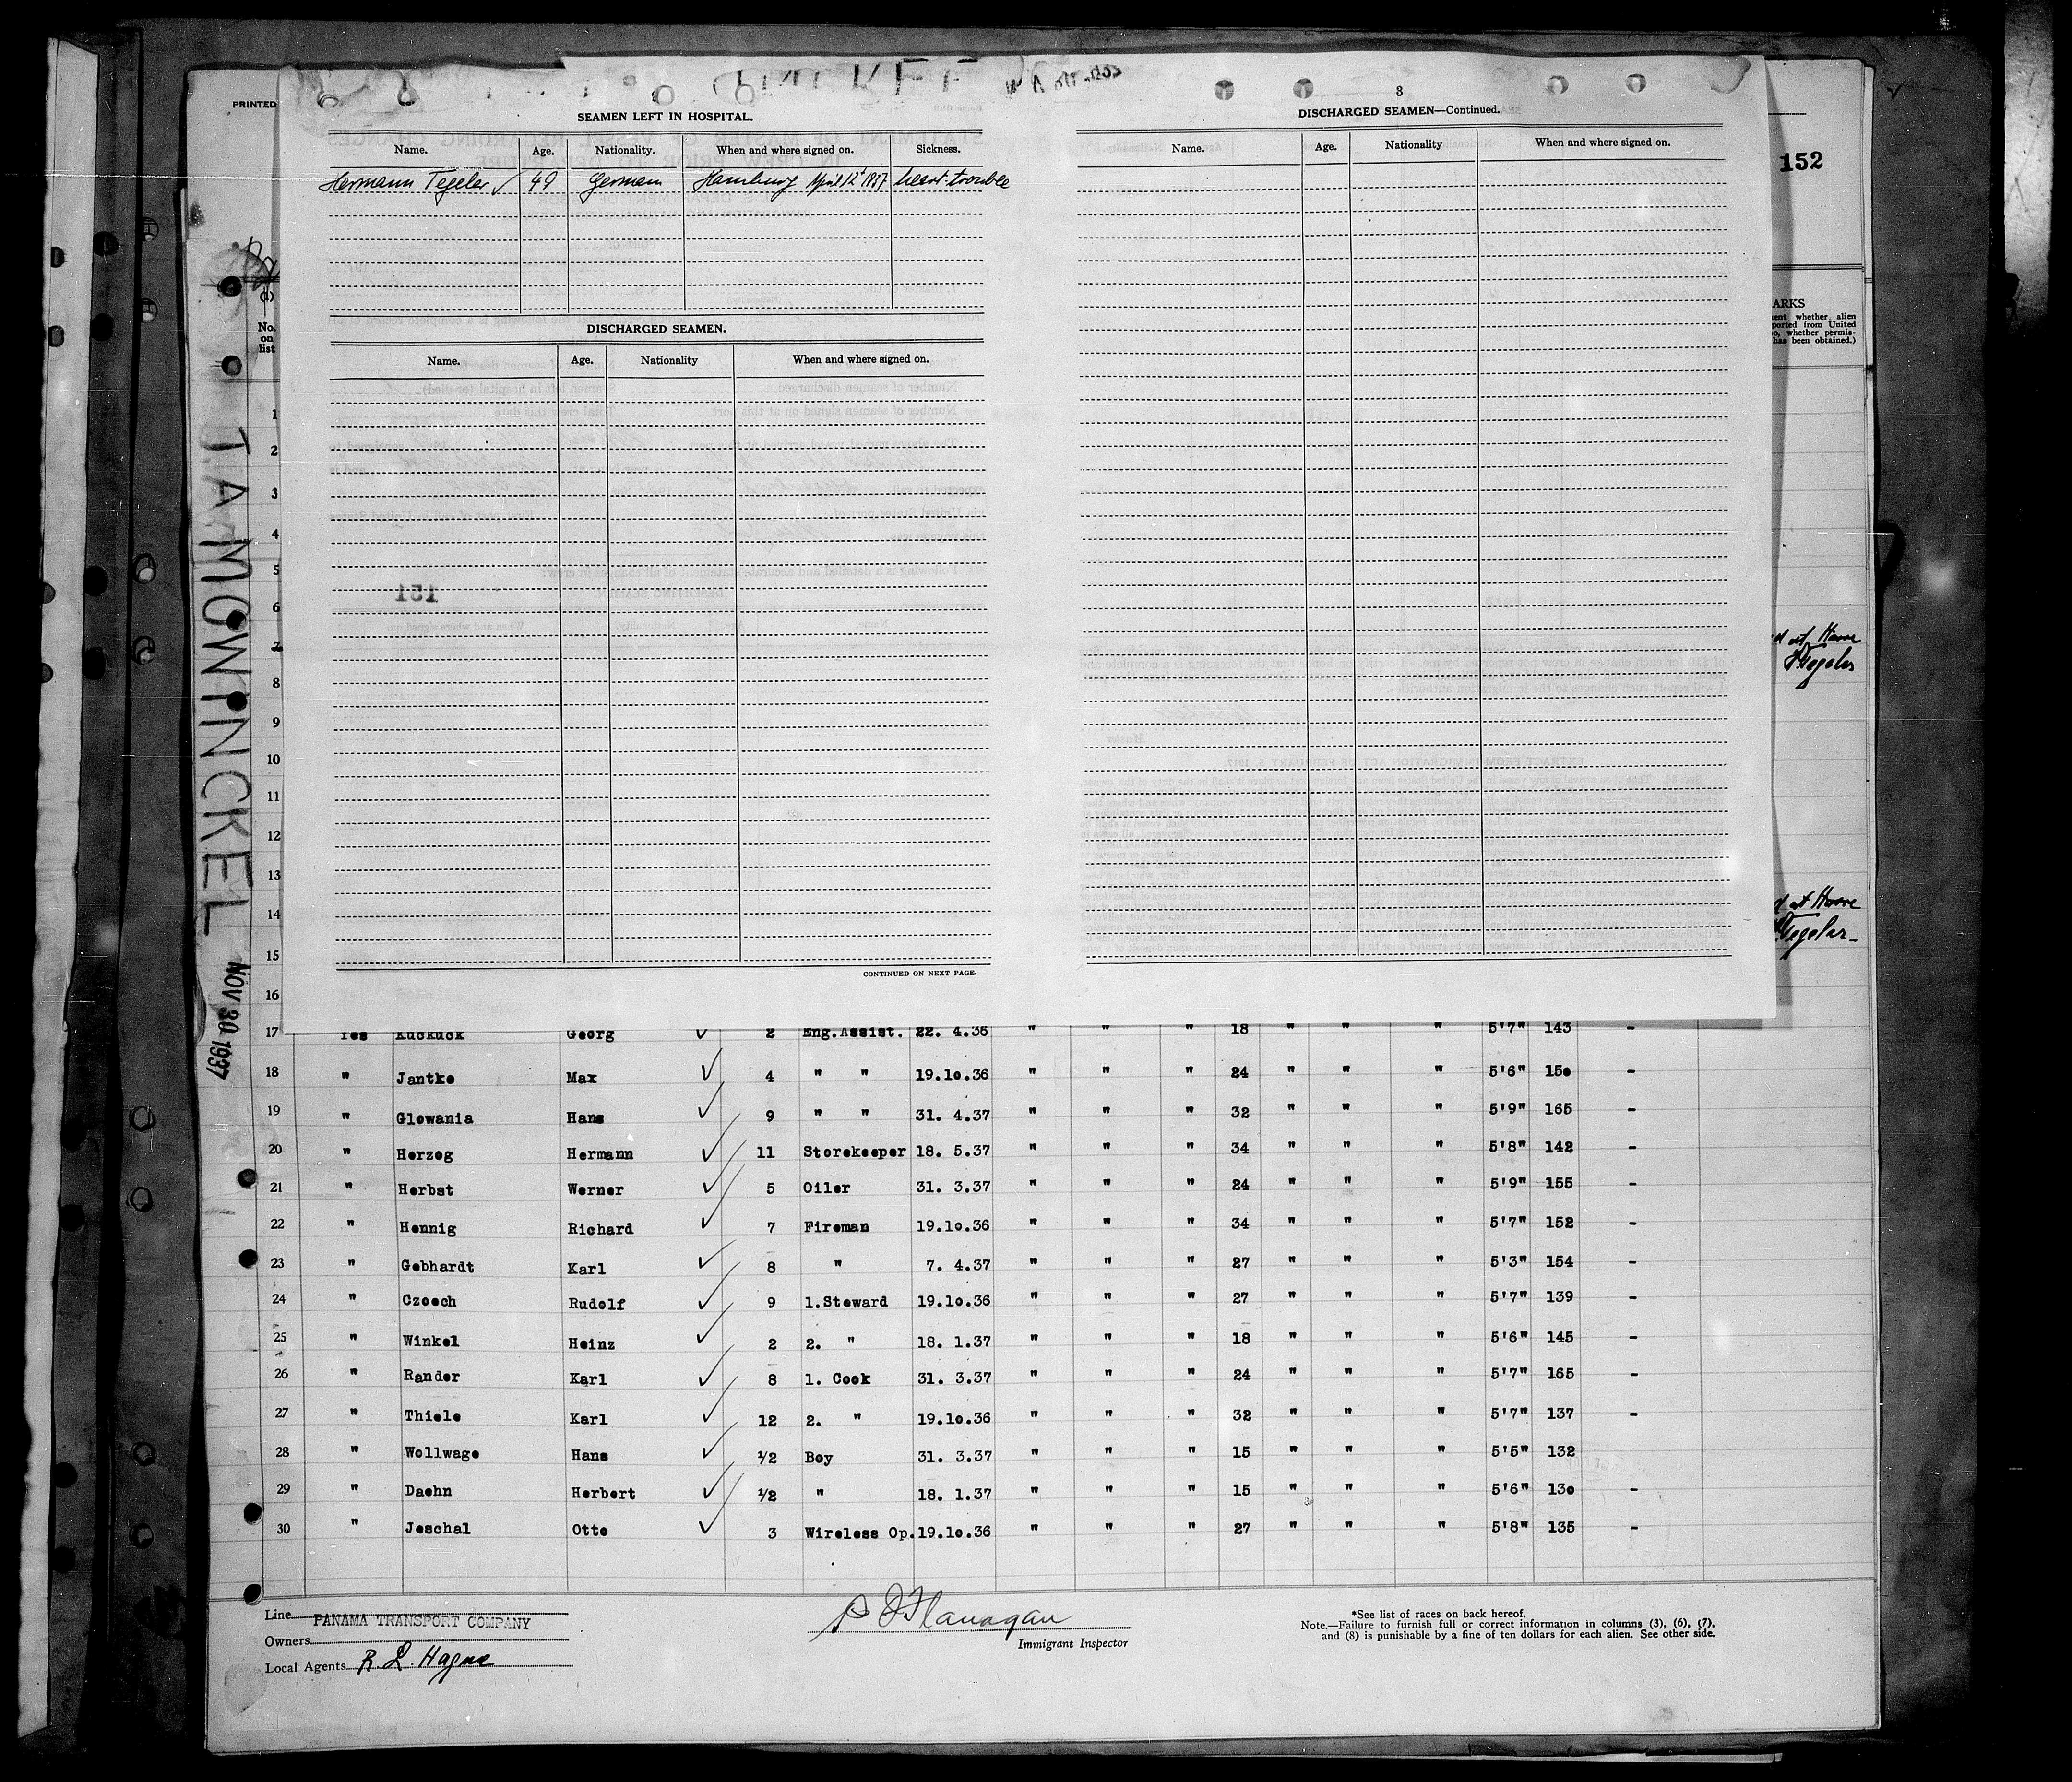 PRINTED
3
SEAMEN LEFT IN HOSPITAL.
Name. Age. Nationality. When and where signed on. Sickness.
Hermann Tegeler ✓ 49 German Hamburg April 12t 1937 heart-trouble
DISCHARGED SEAMEN.
Name. Age. Nationality When and where signed on.
CONTINUED ON NEXT PAGE.
DISCHARGED SEAMEN—Continued.
Name. Age. Nationality When and where signed on.
152
ARKS
ent whether alien
ported from United
o, whether permis-
has been obtained.)
d at Havre
Tegeler
d at Havre
Tegeler
151
I.A. MOWINCKEL NOV 30 1937
(1)
No.
on
list
1
2
3
4
5
6
7
8
9
10
11
12
13
14
15
16
17 Yes Kuckuck Georg ✓ 2 Eng.Assist. 22. 4.36 " " " 18 " " " 5'7" 143 -
18 " Jantke Max ✓ 4 " " 19.10.36 " " " 24 " " " 5'6" 150 -
19 " Glowania Hans ✓ 9 " " 31. 4.37 " " " 32 " " " 5'9" 165 -
20 " Herzog Hermann ✓ 11 Storekeeper 18. 5.37 " " " 34 " " " 5'8" 142 -
21 " Herbst Werner ✓ 5 Oiler 31. 3.37 " " " 24 " " " 5'9" 155 -
22 " Hennig Richard ✓ 7 Fireman 19.10.36 " " " 34 " " " 5'7" 152 -
23 " Gebhardt Karl ✓ 8 " 7. 4.37 " " " 27 " " " 5'3" 154 -
24 " Czoech Rudolf ✓ 9 1.Steward 19.10.36 " " " 27 " " " 5'7" 139 -
25 " Winkel Heinz ✓ 2 2. " 18. 1.37 " " " 18 " " " 5'6" 145 -
26 " Rander Karl ✓ 8 1. Cook 31. 3.37 " " " 24 " " " 5'7" 165 -
27 " Thiele Karl ✓ 12 2. " 19.10.36 " " " 32 " " " 5'7" 137 -
28 " Wollwage Hans ✓ 1/2 Boy 31. 3.37 " " " 15 " " " 5'5" 132 -
29 " Daehn Herbert ✓ 1/2 " 18. 1.37 " " " 15 " " " 5'6" 130 -
30 " Jeschal Otto ✓ 3 Wireless Op. 19.10.36 " " " 27 " " " 5'8" 135 -
Line PANAMA TRANSPORT COMPANY
Owners
Local Agents R. L. Hague
Flanagan
Immigrant Inspector
*See list of races on back hereof.
Note.—Failure to furnish full or correct information in columns (3), (6), (7),
and (8) is punishable by a fine of ten dollars for each alien. See other side.